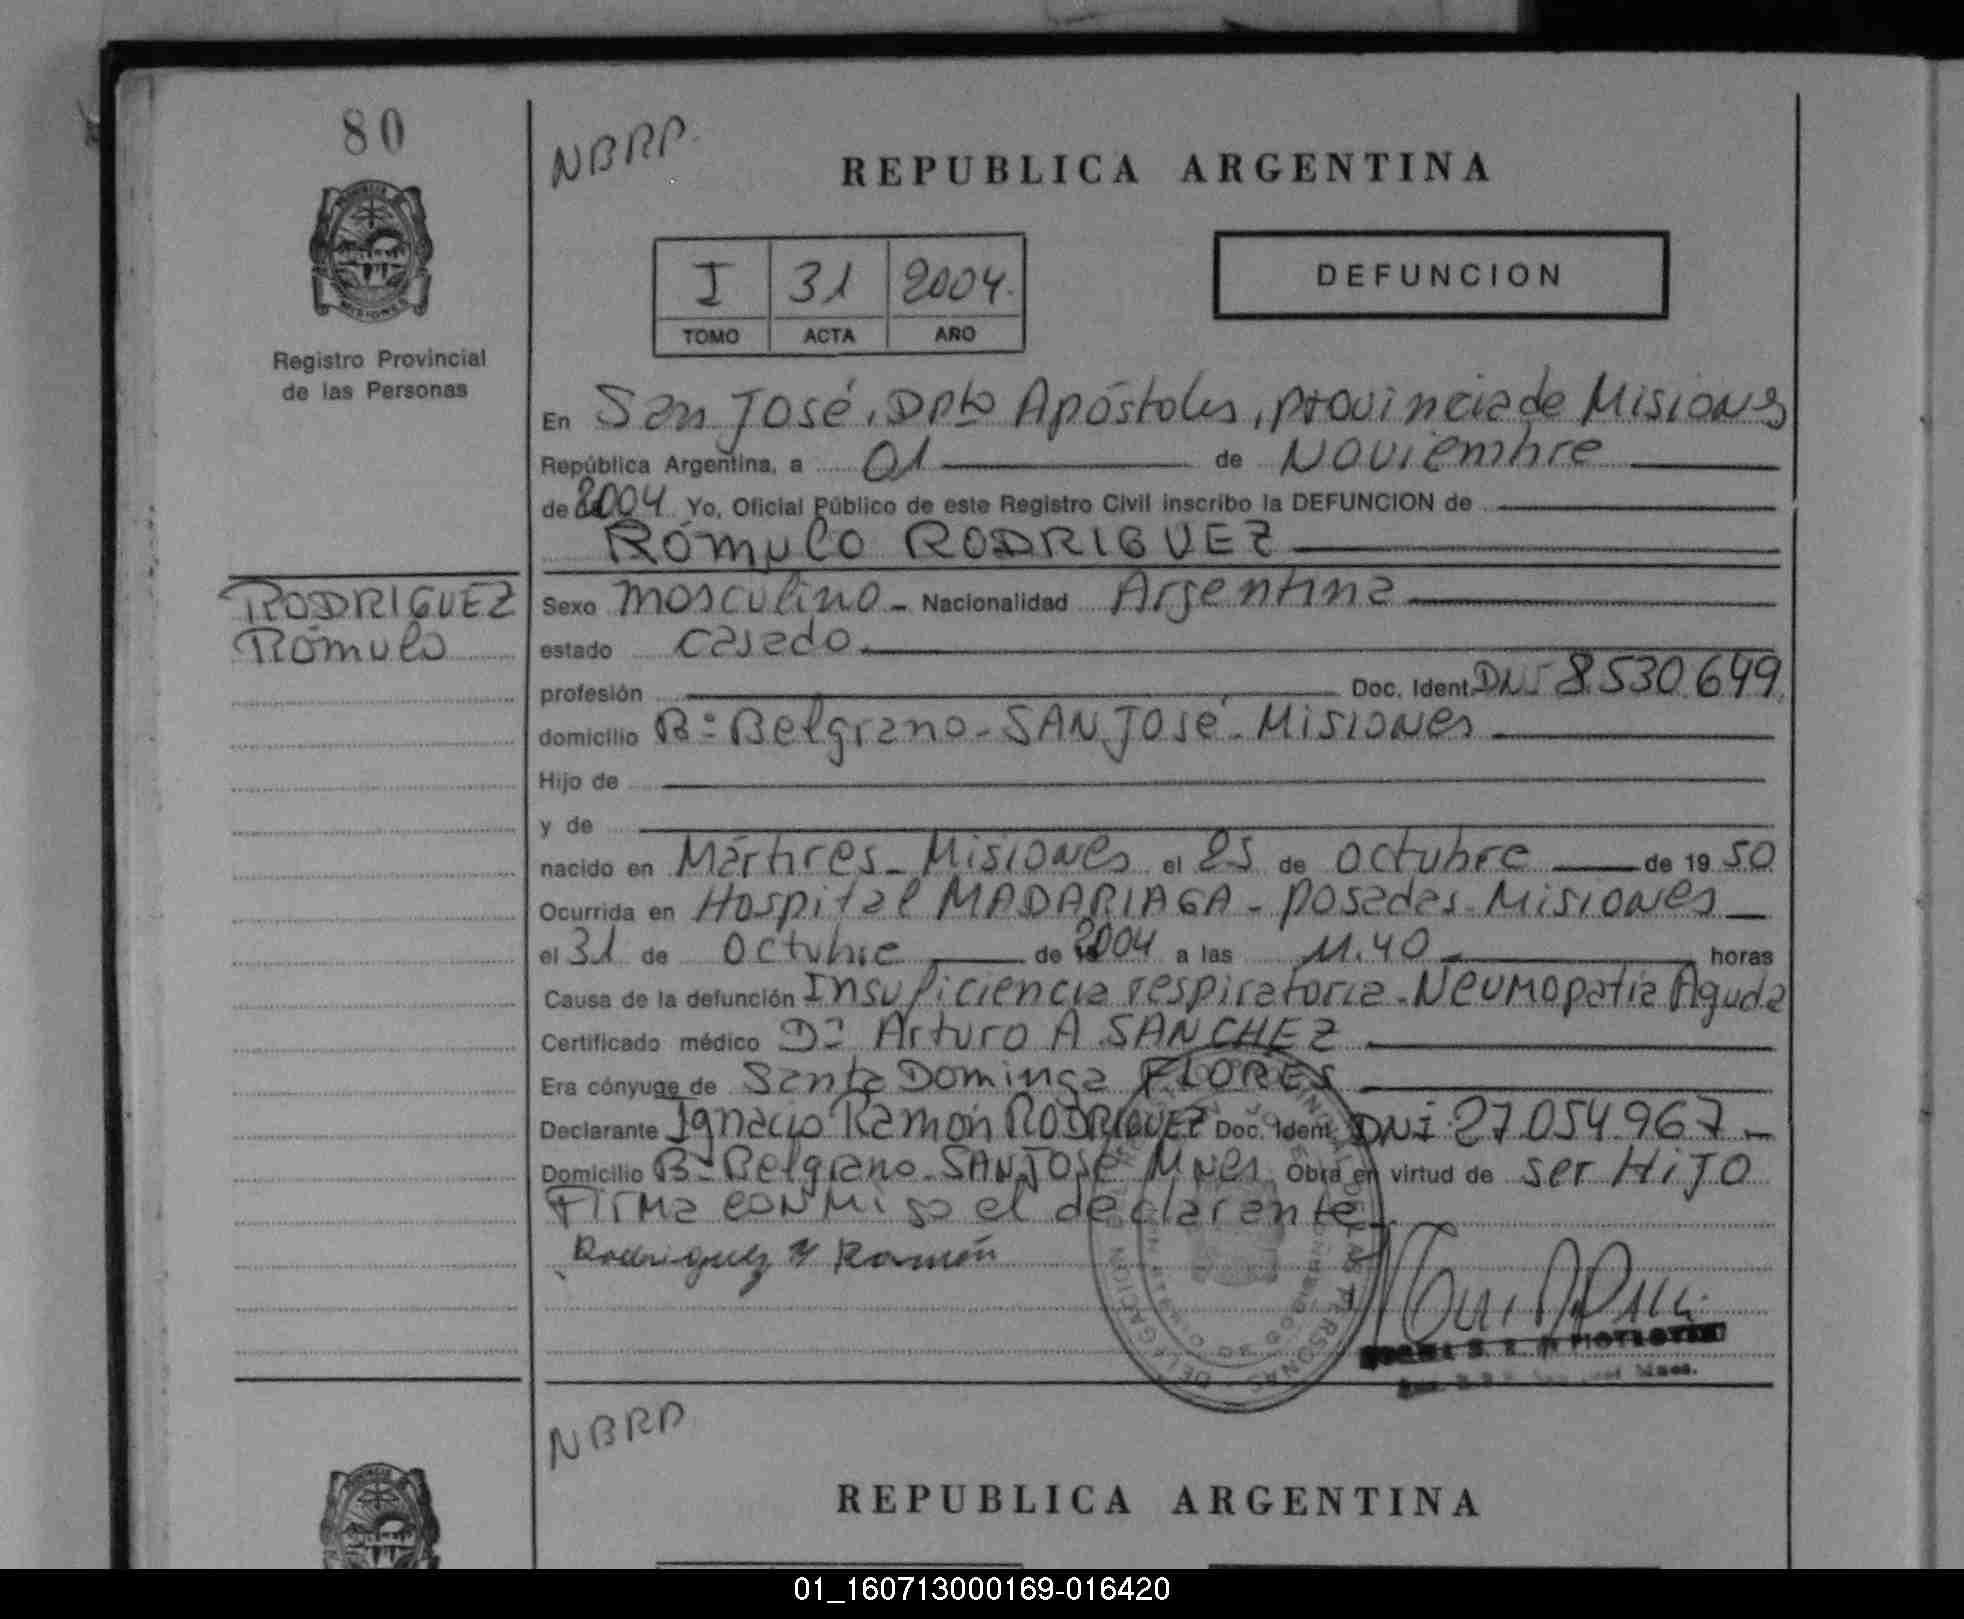 80
NBRP.
REPUBLICA ARGENTINA
I 31 2004.
TOMO ACTA AÑO
DEFUNCION
Registro Provincial
de las Personas
En San José, Dpto Apóstoles, provincia de Misiones
República Argentina, a 01 de Noviembre
de 2004 Yo, Oficial Público de este Registro Civil inscribo la DEFUNCION de
Rómulo RODRIGUEZ
RODRIGUEZ
Rómulo
Sexo masculino - Nacionalidad Argentina
estado casado
profesión Doc. Ident. DNI 8.530.649
domicilio Bº Belgrano - SAN JOSÉ - Misiones
Hijo de
y de
nacido en Mártires - Misiones el 25 de octubre de 1950
Ocurrida en Hospital MADARIAGA - Posadas - Misiones
el 31 de octubre de 2004 a las 11.40 horas
Causa de la defunción Insuficiencia respiratoria - Neumopatia Aguda
Certificado médico Dr Arturo A SANCHEZ
Era cónyuge de Santa Dominga FLORES
Declarante Ignacio Ramón RODRIGUEZ Doc. Ident. DNI 27.054.967 -
Domicilio Bº Belgrano - SAN JOSÉ Mnes Obra en virtud de ser HiJO
Firma conmigo el declarante
Rodriguez Y Ramón
NBRP
REPUBLICA ARGENTINA
01_160713000169-016420